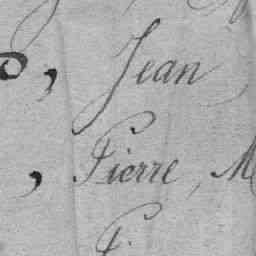 , Jean
, Pierre, M